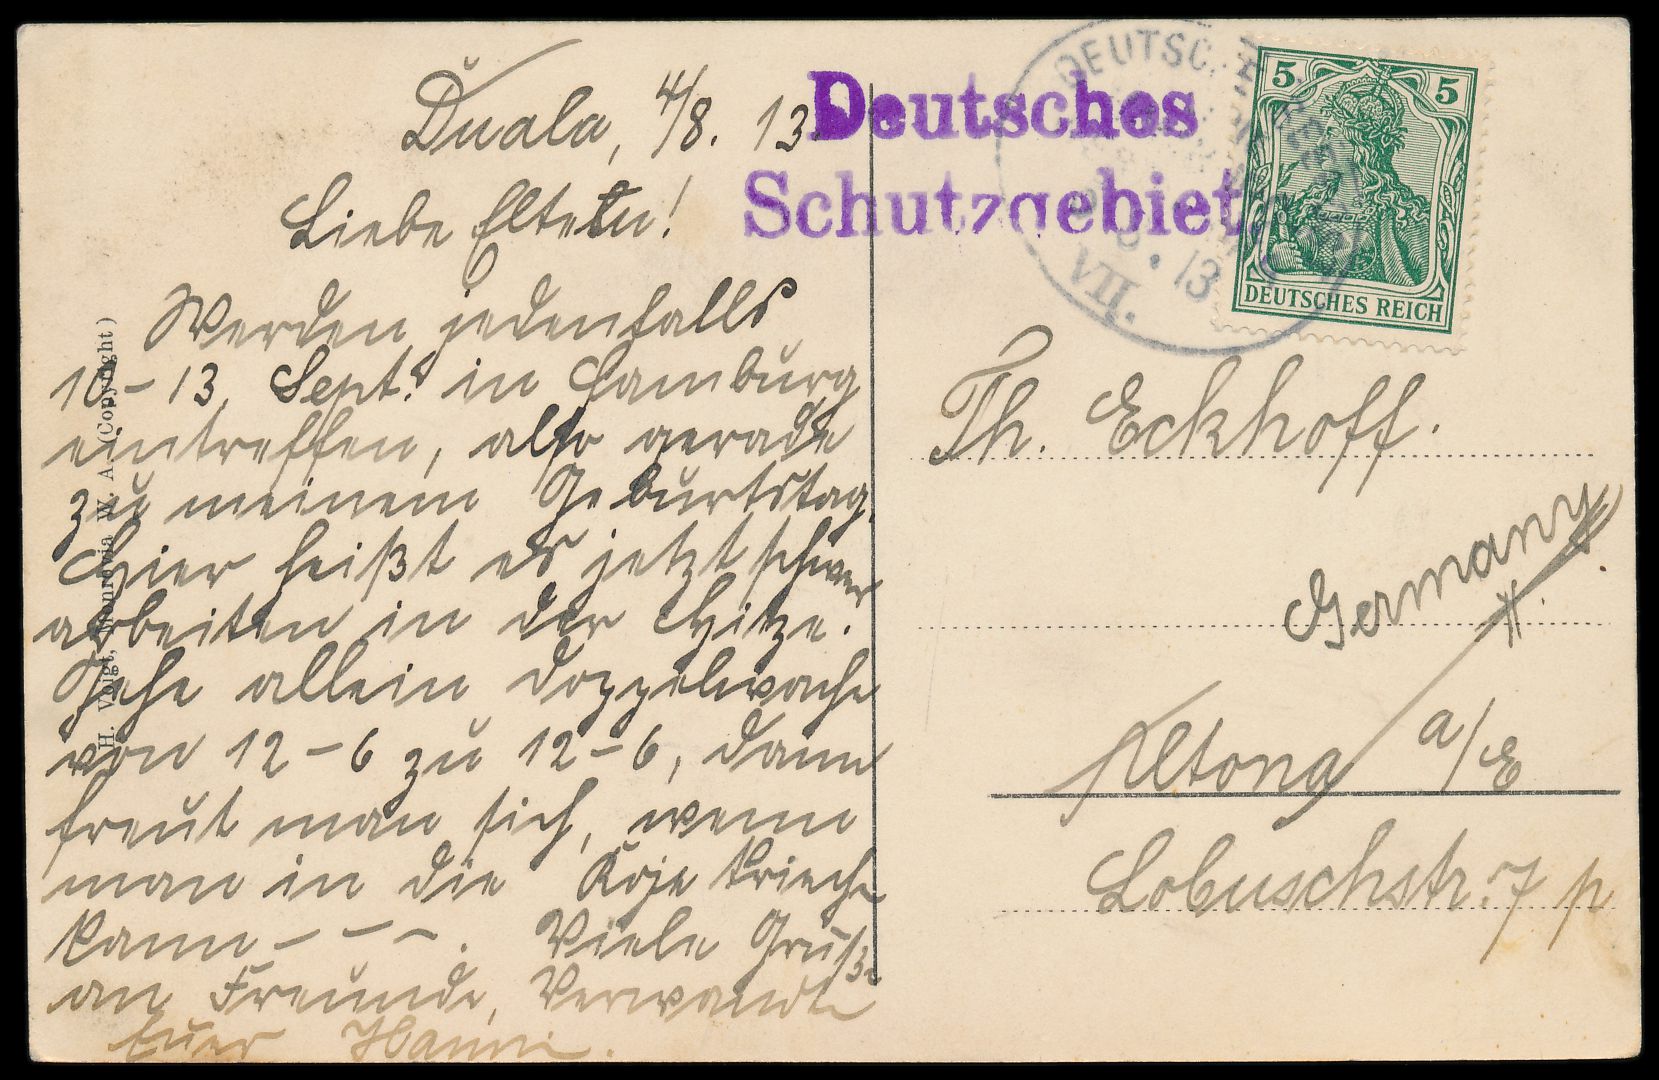 Duala, 4/8. 13.
Liebe Eltern!
Werden jedenfalls
10–13. Sept. in Hamburg
eintreffen, also gerade
zu meinem Geburtstag.
Hier heißt es jetzt schwer
arbeiten in der Hitze.
Gehe allein Doppelwache
von 12–6 zu 12–6, dann
freut man sich, wenn
man in die Koje kriechen
kann – – –. Viele Grüße
an Freunde, Verwandte
Euer Hanni.
H. Voigt, Monrovia W. A. (Copyright)
Deutsches
Schutzgebiet.
DEUTSCHE
13
VII.
5 5
DEUTSCHES REICH
Th. Eckhoff.
Germany
Altona a/E
Lobuschstr. 7 p